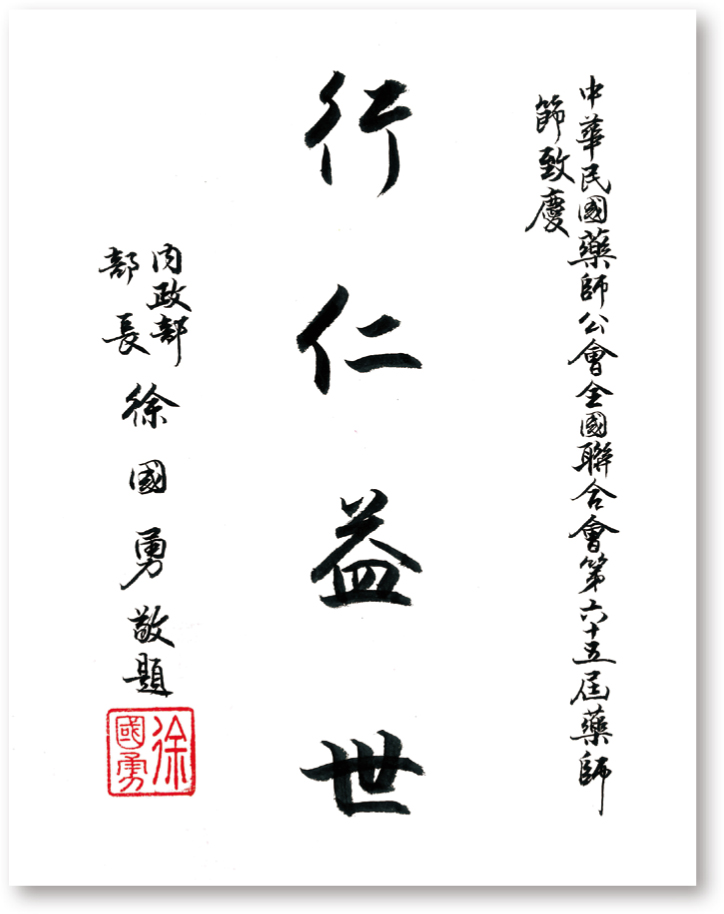 中華民國藥師公會全國聯合會第六十五屆藥師
節致慶
行仁益世
內政部
部長
徐國勇敬題
徐
國勇